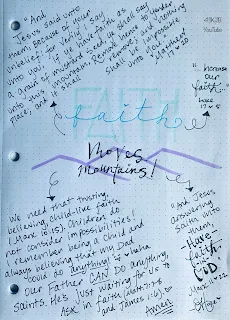 And
Jesus said unto
them, Because of your
unbelief: for verily I say
unto you, If ye have faith as
a grain of mustard seed, ye shall say
unto this mountain, Remove hence to yonder
place; and it shall remove; and nothing
shall be impossible
unto you.
Matt. 17:20
"Increase
our
faith"
Luke
17:5
FAITH
faith
Moves
Mountains!
We need that trusting,
believing, child-like faith
(Mark 10:15). Children do
not consider impossibilities!
I remember being a child and
always believing that my Dad
could do anything! haha
our Father CAN DO anything,
saints. He's just waiting for us to
ASK in faith (Matt 7:7-8
and James 1:6).
Amen
"And Jesus
answering
saith unto
them,
Have
faith
in
GOD"
Mark 11:22